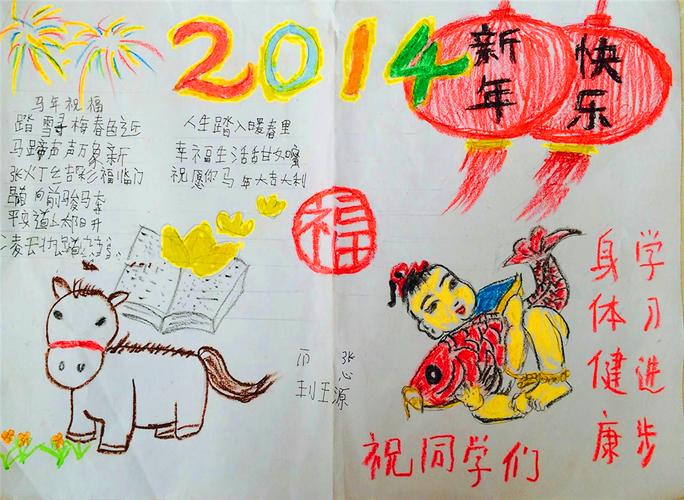 2014
新年
快乐
马年祝福
踏雪寻梅春
马蹄声声万象新
张火丁红古彩福临门
向前骏马奔
平安道上太阳升
人生踏入暖春里
幸福生活甜如蜜
祝愿你马年大吉大利
福
张心源
祝同学们
学习进步
身体健康